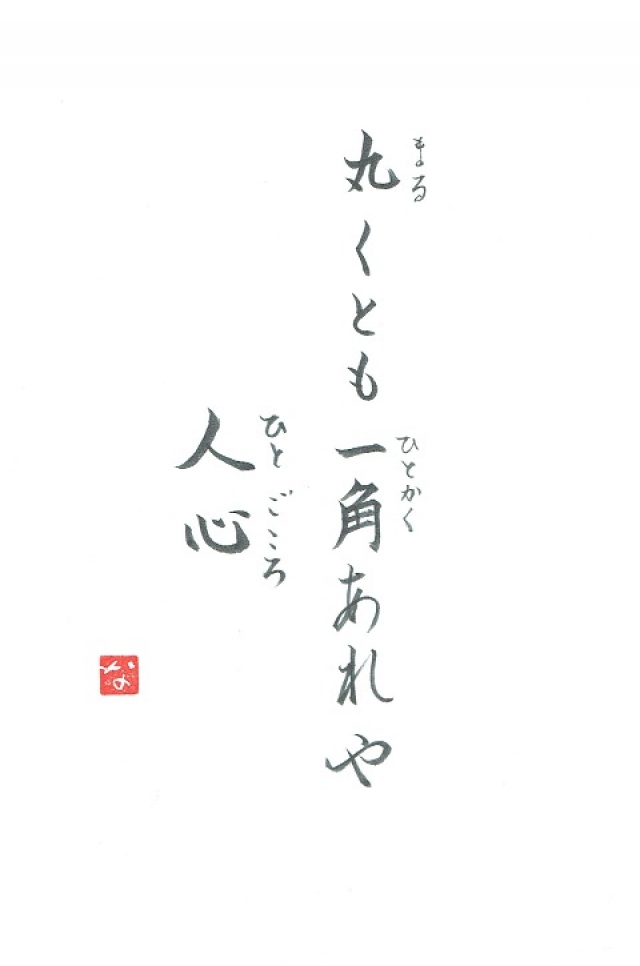 丸くとも一角あれや
まる
ひとかく
人心
ひとごころ
な